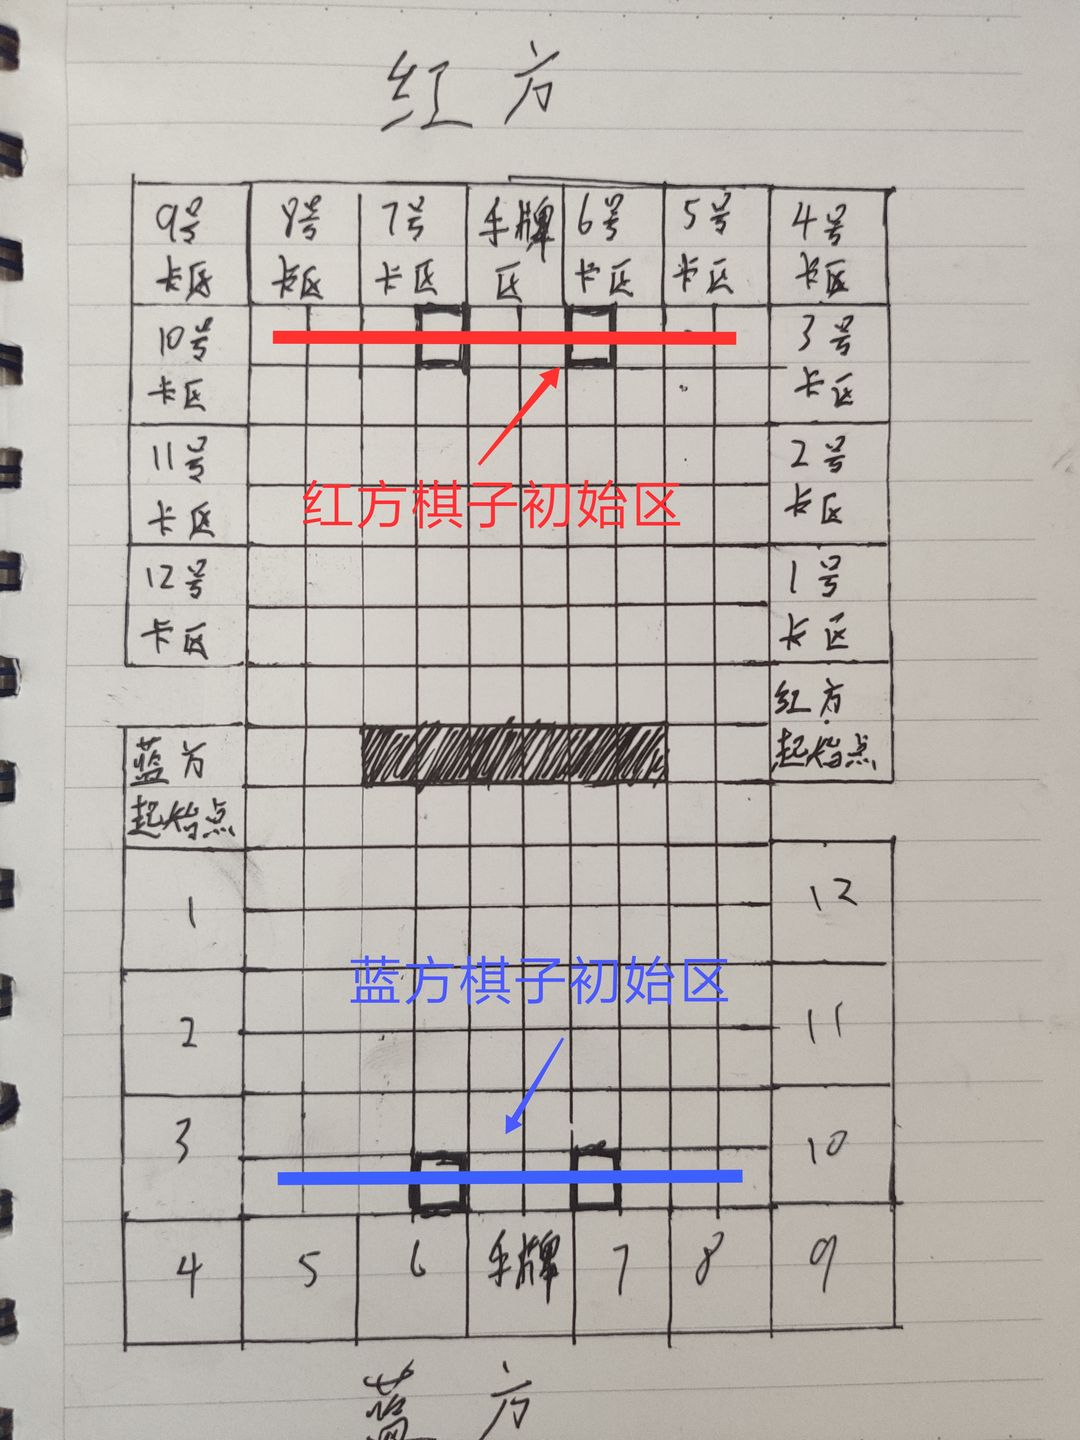 红方
9号 8号 7号 手牌 6号 5号 4号
卡区 卡区 卡区 区 卡区 卡区 卡区
10号 3号
卡区 卡区
11号 2号
卡区 卡区
红方棋子初始区
12号 1号
卡区 卡区
红方
起始点
蓝方
起始点
1 12
蓝方棋子初始区
2 11
3 10
4 5 6 手牌 7 8 9
蓝方